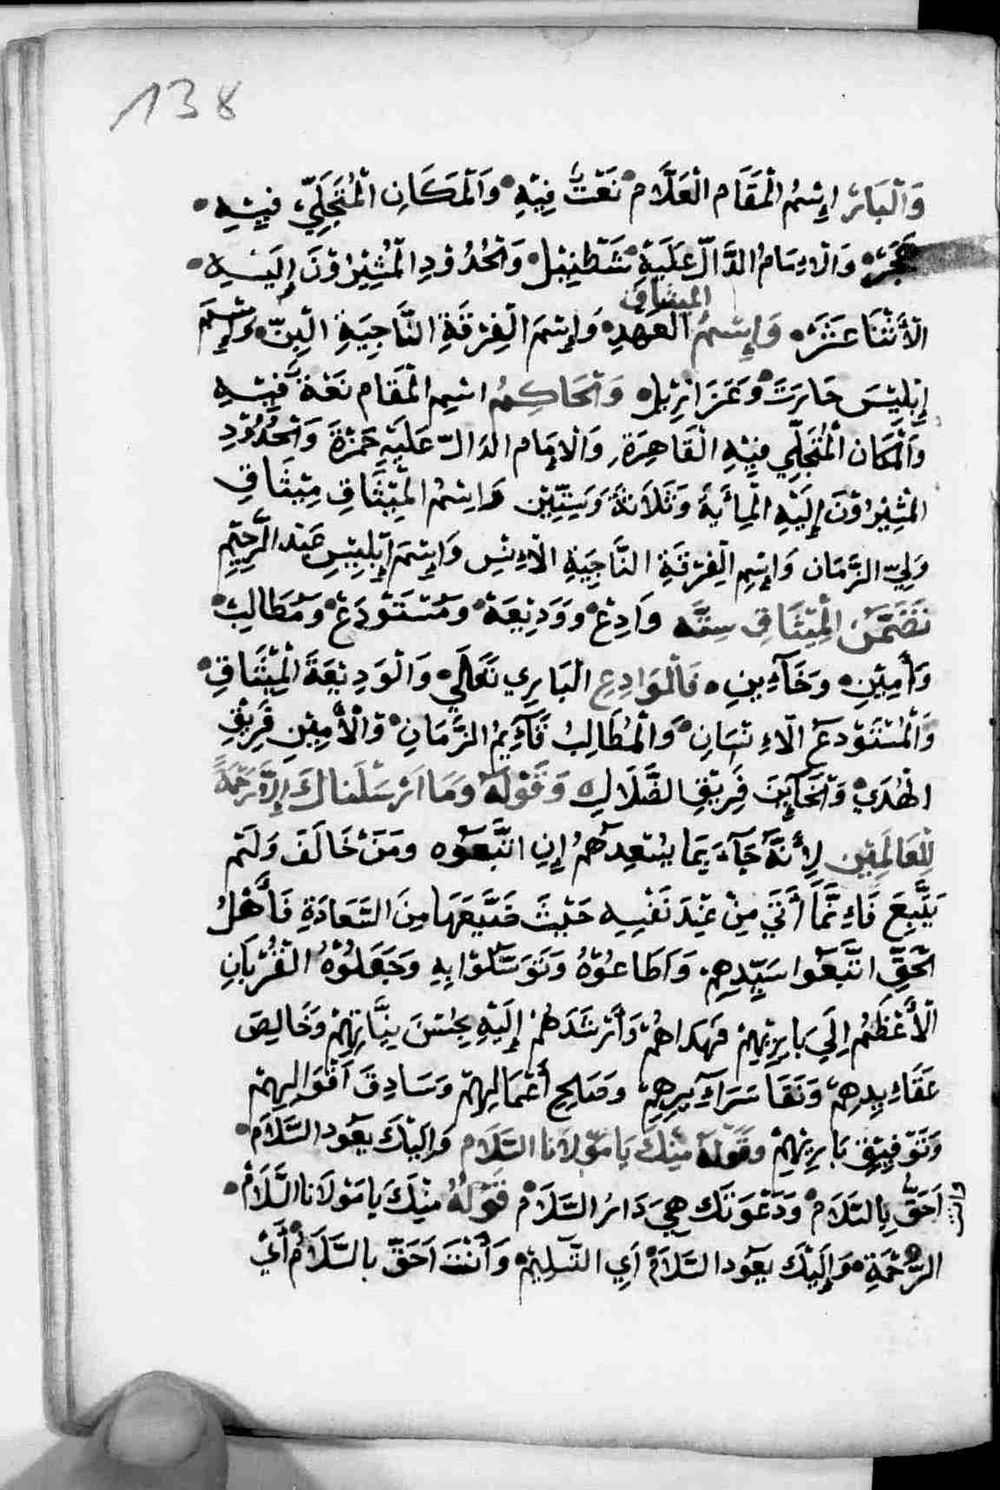 138
وَالْبَارُ إِسْمُ الْمَقَامِ الْعَلَّامِ نَعْتٌ فِيْهِ وَالْمَكَانِ الْمُتَجَلِّيِّ فِيْهِ
هَجَرَ وَالْاِمَامُ الدَّالّ عَلَيْهِ شَطْنِيْل وَالْحُدُوْدِ الْمُشِيْرُوْنَ إِلَيْهِ
الميثاق
الْأَثْنَا عَشَرَ وَإِسْمُ الْعَهْدِ وَإِسْمَ الْفِرْقَةِ النَّاجِيَةِ الْبِنّ وَإِسْمَ
إِبْلِيْسَ حَارَتَ وَعَزَازِيْل وَالْحَاكِمُ اسْمِ الْمَقَامِ نَعْتٌ فِيْهِ
وَالْمَكَانِ الْمُتَجَلِّي فِيْهِ الْقَاهِرَةِ وَالْاِمَامِ الدَالّ عَلَيْهِ حَمْزَةَ وَالْحُدُوْدِ
الْمُشِيْرُوْنَ إِلَيْهِ الْمِأَيَةُ وَثَلَاثَةُ وَسِتِّيْن وَاِسْمُ الْمِيْثَاقِ مِيْثَاقِ
وَلِيِّ الزَّمَان وَاِسْمِ الْفِرْقَةِ النَّاجِيَةِ الْاِنْس وَإِسْمَ إِبْلِيْسِ ضِدِ الرَّحِيْمِ
تَضَمَّنَ الْمِيْثَاقِ سِتَّه وَادِعْ وَوَدِيْعَةْ وَمُسْتَوْدَعْ وَمُطَالِبْ
وَأَمِيْنِ وَخَآئِنِ فَالْمَوَادِعِ الْبَارِي تَعَالَى وَالْوَدِيْعَةَ الْمِيْثَاقِ
وَالْمُسْتَوْدعَ الْاِنْسَانِ وَالْمُطَالِبُ قَآئِمُ الزَّمَانِ وَالْأَمِيْنِ فَرِيْقِ
الْهُدَى وَالْخَآئِنَ فَرِيْقِ الضَّلَالِ وَقَوْلَهُ وَمَا اَرْسَلْنَاكَ إِلَّا رَحْمَةً
لِلْعَالَمِيْن لِأَنَّهُ جَآءَ بِمَا يُسْعِدهُمُ إِنِ اتَّبَعُوه وَمَنْ خَالَفَ وَلَمْ
يَتَّبِعَ فَاِنَّمَا أُتِيَ مِنْ عِنْدَ نَفْسِهِ حَيْثَ ضَيَّعَهَا مِنَ السَّعَادَةِ فَأَهْلُ
الْحَقِّ اتَّبَعُوا سَيِّدِهِمْ وَاَطَاعُوْهُ وَتَوَسَّلُوْا بِهِ وَجَعَلُوْهُ الْقُرْبَانِ
الْأَعْظَمُ اِلَى بَارِيْهِمْ فَهَدَاهُمْ وَأَرْشَدَهُمْ إِلَيْهِ بِحُسْنَ نِيَّاتِهِمْ وَخَالِصِ
عَقَاءِيدِهِمْ وَنَقَا سَرَآءِيرِهِمْ وَصَالِحِ أَعْمَالِهِمْ وَصَادِقَ اَقْوَالِهِمْ
وَتَوْفِيْقِ بَارِيْهِمْ وَقَوْلَهُ مِنْكَ يَا مَوْلَانَا السَّلَام وَاِلَيْكَ يَعُود السَّلَام
وانت
اَحَقّ بِالسَّلَامْ وَدَعْوَتَك هِيَ دَارُ السَّلَامْ قَوْلُهُ مِنْكَ يَا مَوْلَانَا السَّلَامْ
الرَّحْمَةِ وَإِلَيْكَ يَعُود السَّلَامُ اَيِ التَّسْلِيْمْ وَأَنْتَ اَحَقّ بالسَّلَامْ أَيْ